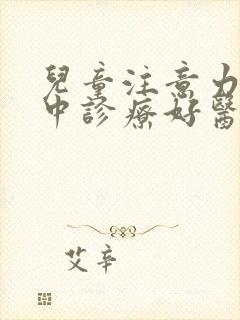 兒童注意力
中診療好醫
艾辛